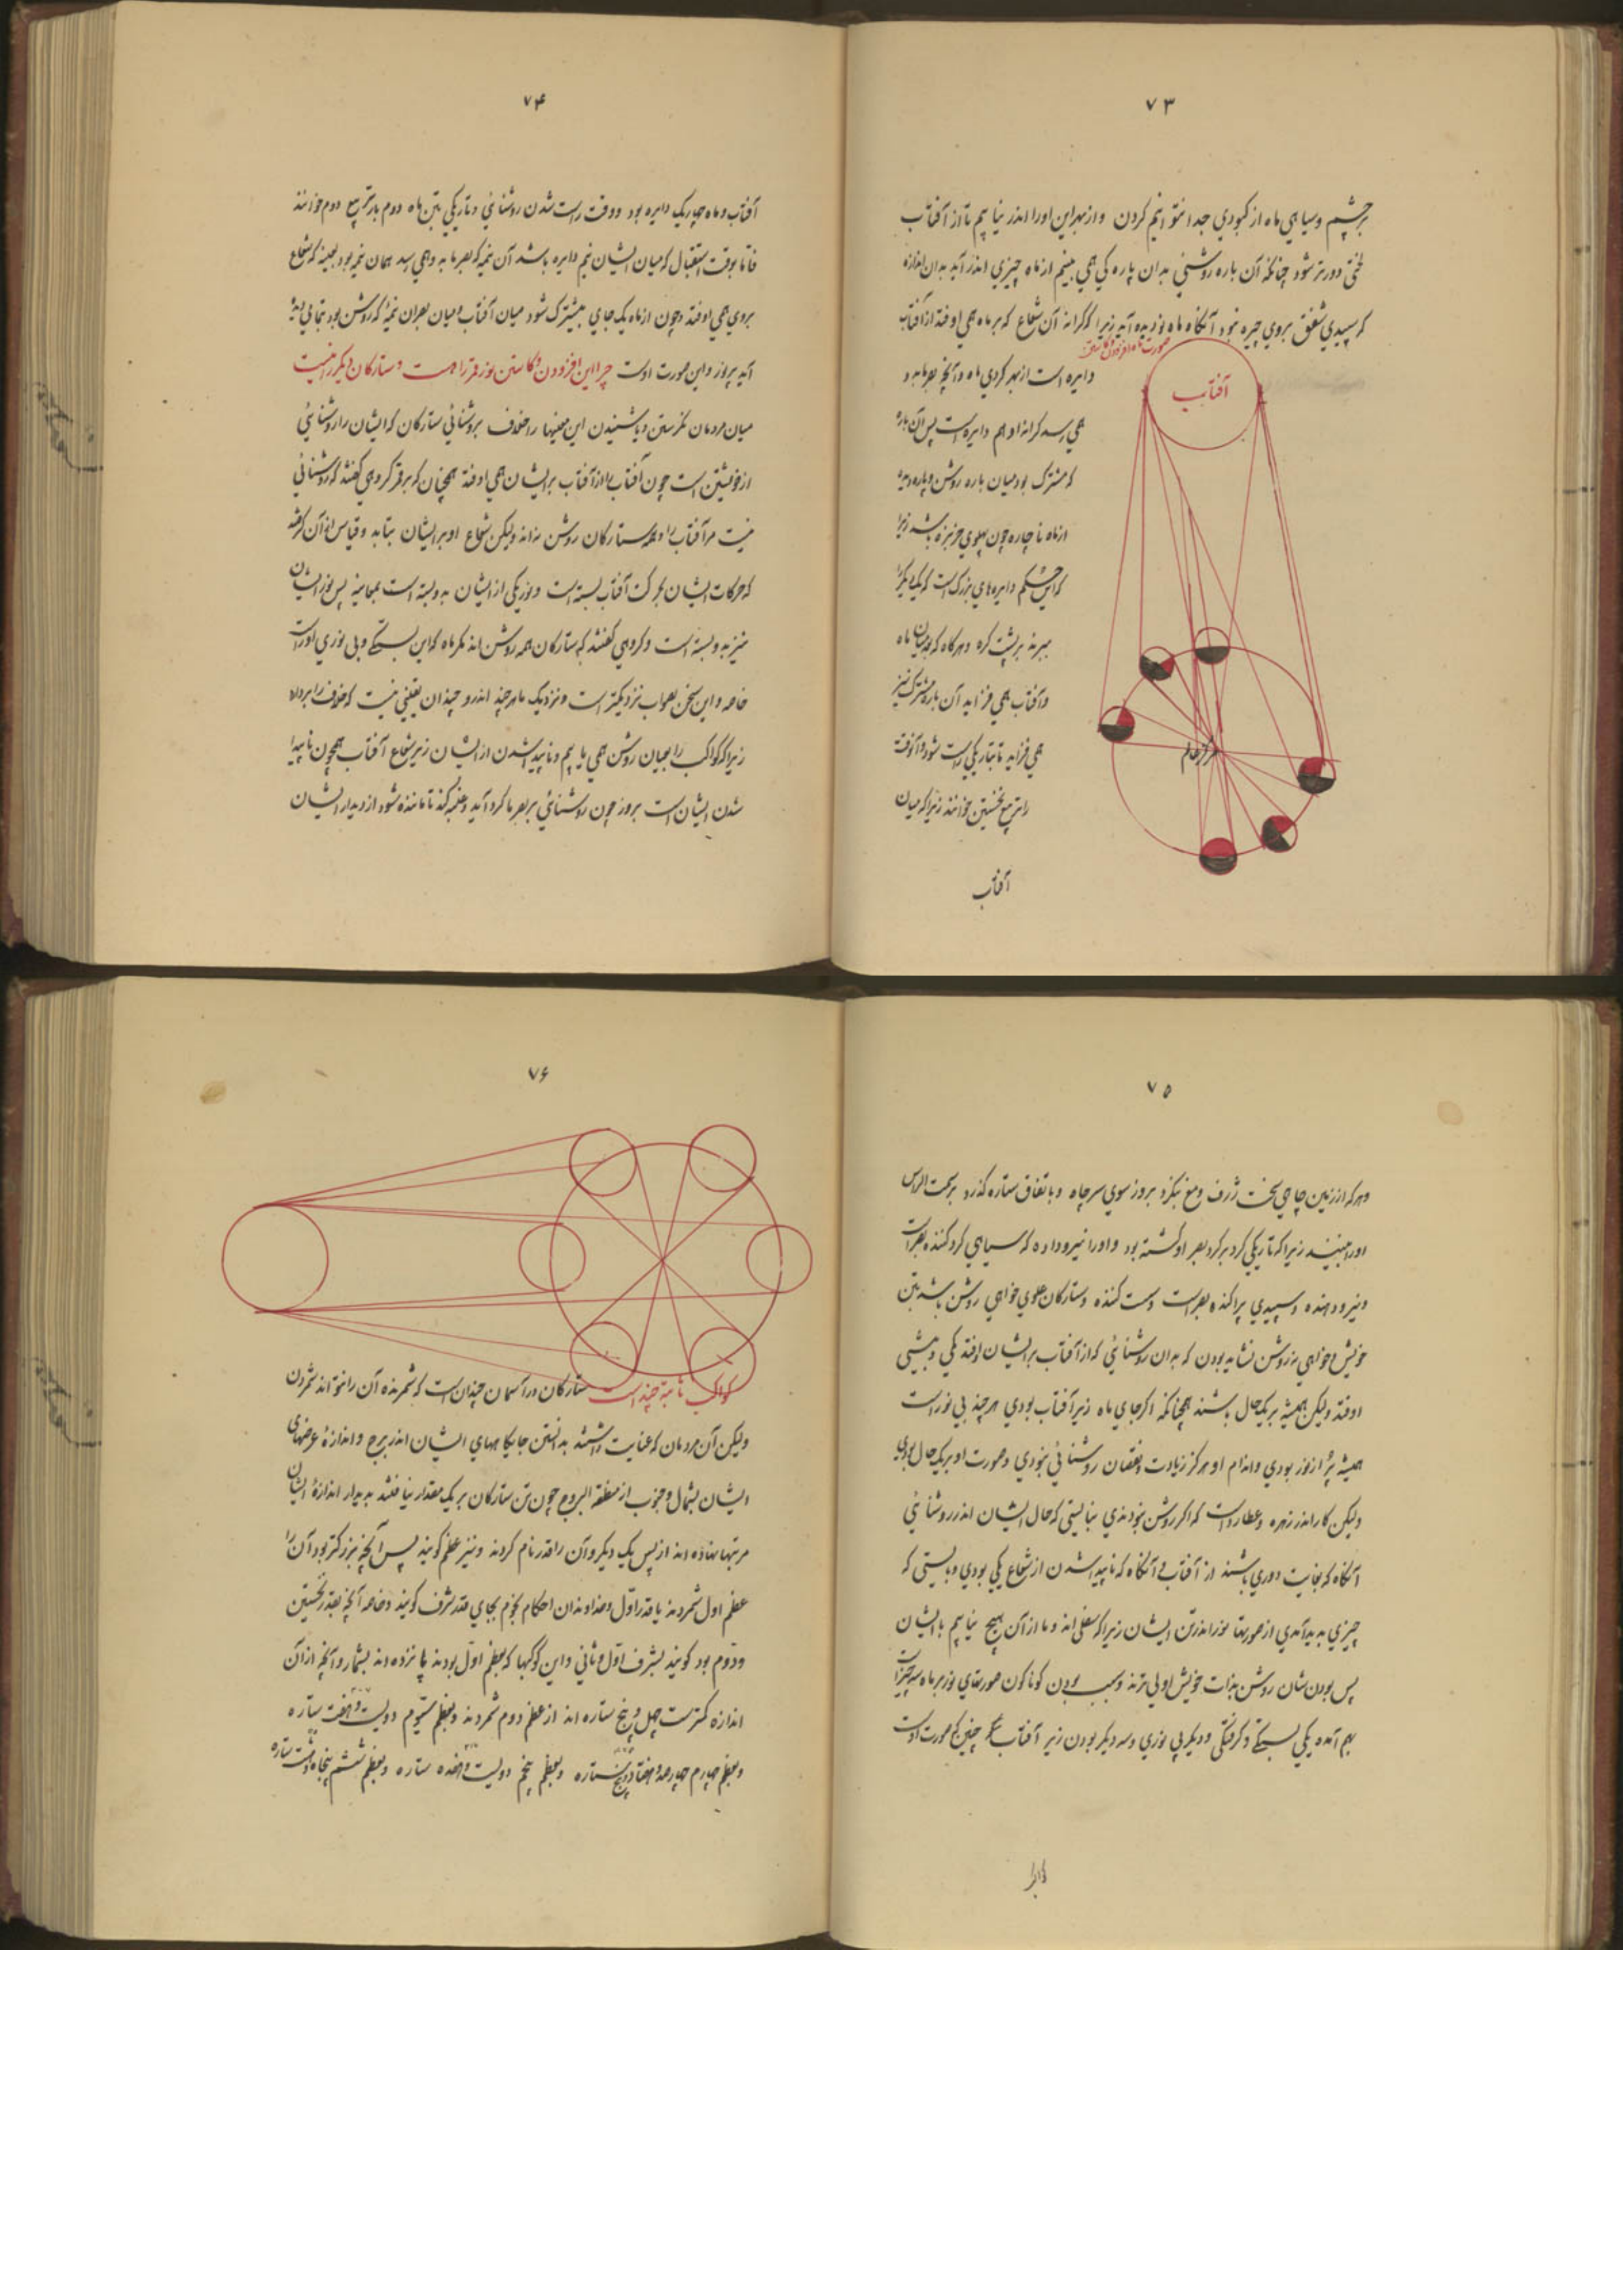 ۷۳
بر چشم وسیاهی ماه از کبودی جدا نتوانیم کردن وازبهر این اورا اندر نیابیم تا از آفتاب
لختی دورتر شود چنانکه آن باره روشنی بدان پاره کی همی بینیم از ماه چیزی اندر آید بدان اندازه
که سپیدی شفق بروی چیره نبود آنگاه ماه نو دیده آید زیرا که کرانه آن شعاع که بر ماه همی اوفتد از آفتاب
صورت ماه افزودن وکاستن
آفتاب
دایره است ازبهر کردی ماه وآنچه بصر ما بدو
همی رسد کرانه او هم دایره است پس آن باره
که مشترک بود میان باره روشن وپاره دیده
از ماه ناچاره چون پهلوی خربزه باشد زیرا
که این حکم دایرهای بزرگ است که یکدیگر را
ببرند بر پشت کره وهرگاه که میان ماه
وآفتاب همی فزاید آن باره مشترک نیز
همی فزاید تا بتاریکی راست شود وآنوقت
را تربیع نخستین خوانند زیرا که میان
مرکز عالم
آفتاب
۷۴
آفتاب وماه چهاریک دایره بود ووقت راست شدن روشنائی وتاریکی بتن ماه دوم بار تربیع دوم خوانند
فاما بوقت استقبال که میان ایشان نیم دایره باشد آن نیمه که بصر ما بدو همی رسد همان نیمه بود بعینه که شعاع
بروی همی اوفتد وچون از ماه یک جای مشترک شود میان آفتاب ومیان بصر آن نیمهٔ که روشن بود بتمامی دیده
آید پر نور واین صورت اوست چرا این افزودن وکاستن نور قمر را هست وستارکان دیگر را نیست
میان مردمان نکرستن وباشنیدن این معنیها را خلاف بروشنائی ستارکان که ایشان را روشنائی
از خویشتن است چون آفتاب یا از آفتاب بر ایشان همی اوفتد همچنان که بر قمر کروهی کفتند که روشنائی
نیست مر آفتاب را وهمه ستارکان روشن نه‌اند ولیکن شعاع او بر ایشان بتابد وقیاس از آن کرفتند
که حرکات ایشان بحرکت آفتاب بسته است ونور یکی از ایشان بدو بسته است بمعاینه پس نور ایشان
نیز بدو بسته است وکروهی کفتند که ستارکان همه روشن اند مکر ماه که این بستکی وبی نوری او راست
خاصه واین سخن بصواب نزدیکتر است ونزدیک ما هر چند اندرو چندان یقینی نیست که خلاف را بردارد
زیرا که کواکب را بمیان روشن همی یابیم وناپدید شدن از ایشان زیر شعاع آفتاب همچون ناپیدا
شدن ایشان است بروز چون روشنائی بر بصر ما کرد آید وغلبه کند تا مانده شود از دیدار ایشان
۷۵
وهر که از زمین چاهی سخت ژرف ومغ بنکرد بروز سوی سر چاه وباتفاق ستاره کذرد بر سمت الراس
اورا ببیند زیرا که تاریکی کرد بر کرد بصر او کشته بود واورا نیرو داده که سیاهی کرد کننده بصر است
ونیرو دهنده وسپیدی پراکنده بصر است وسست کننده وستارکان علوی خواهی روشن باشند بتن
خویش وخواهی نه روشن نشاید بودن که بدان روشنائی که از آفتاب بر ایشان اوفتد کمی وبیشی
اوفتد ولیکن همیشه بر یک حال باشند همچنانکه اکر جای ماه زبر آفتاب بودی هر چند بی نور است
همیشه پر از نور بودی واندام او هرکز زیادت ونقصان روشنائی نبودی وصورت او بر یک حال بودی
ولیکن کار اندر زهره وعطارد است که اکر روشن نبودندی ببایستی که حال ایشان اندر روشنائی
آنکاه که بغایت دوری باشند از آفتاب وآنکاه که ناپیدا شدن از شعاع یکی بودی وبایستی که
چیزی پدید آمدی از صورتها نور اندر تن ایشان زیرا که سفلی اند وما از آن هیچ نیابیم بایشان
پس بودن شان روشن بذات خویش اولی ترند وسبب بودن کوناکون صورتهای نور بر ماه سه چیز است
بهم آمده یکی بستکی وکرفتکی ودیکر بی نوری وسه دیکر بودن زیر آفتاب وچنین که صورت اوست
۷۶
کواکب ثابته چند است ستارکان در آسمان چندان است که شمرنده آن را نتواند شمردن
ولیکن آن مردمان که عنایت داشتند بدانستن جایکاههای ایشان اندر بروج واندازهٔ عرضهای
ایشان بشمال وجنوب از منطقه البروج چون تن ستارکان بر یک مقدار نیافتند بدیدار اندازهٔ ایشان
مرتبها نهاده اند از پس یک دیکر وآن را قدر نام کردند ونیز عظم کویند پس آنچه بزرکتر بود آن را
عظم اول شمردند یا قدر اول وخداوندان احکام نجوم بجای قدر شرف کویند وخاصه آنچه بقدر نخستین
ودوم بود کویند بشرف اول وثانی واین کوکبها که بعظم اول بودند پانزده اند بشمار وآنچه از آن
اندازه کمتر است چهل وپنج ستاره اند از عظم دوم شمردند وبعظم سیوم دویست وهفت ستاره
وبعظم چهارم چهار صد وهفتاد وپنج ستاره وبعظم پنجم دویست وهفده ستاره وبعظم ششم پنجاه وهشت ستاره